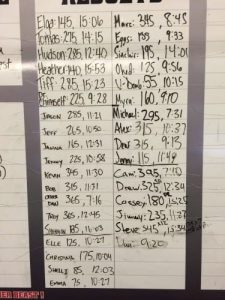 RESULTS
Elna 145, 15:06
Tomas 215, 14:15
Hudson 285, 12:40
Heather 140, 15:53
Tiff 295, 15:23
Phimself 225, 9:28
JASON 285, 11:21
JEFF 265, 10:50
JANNA 165, 12:31
Jenny 225, 10:58
KEVIN 345, 11:30
BOB 315, 11:31
OTHER DAN 365, 7:16
Troy 365, 12:45
SHANNAN 185, 11:03
ELLE 125, 10:27
CHRISTINA 175, 10:04
SHELLI 85, 12:03
Emma 75, 10:27
Marc: 345 8:45
Eggs: 155 9:33
Sinclair: 195 14:01
Ohed: 125 9:56
V-bomb: 55 10:15
Myra: 160, 9:10
Michael: 295, 7:31
Alex: 315, 10:37
Dew 315, 9:13
Jenny: 115, 11:49
Cam: 395, 7:40
Drew: 325, 12:34
Cassey: 180,
Jimmy: 235, 11:37
Steve 345, 15:34
9:20
ER BEAST!